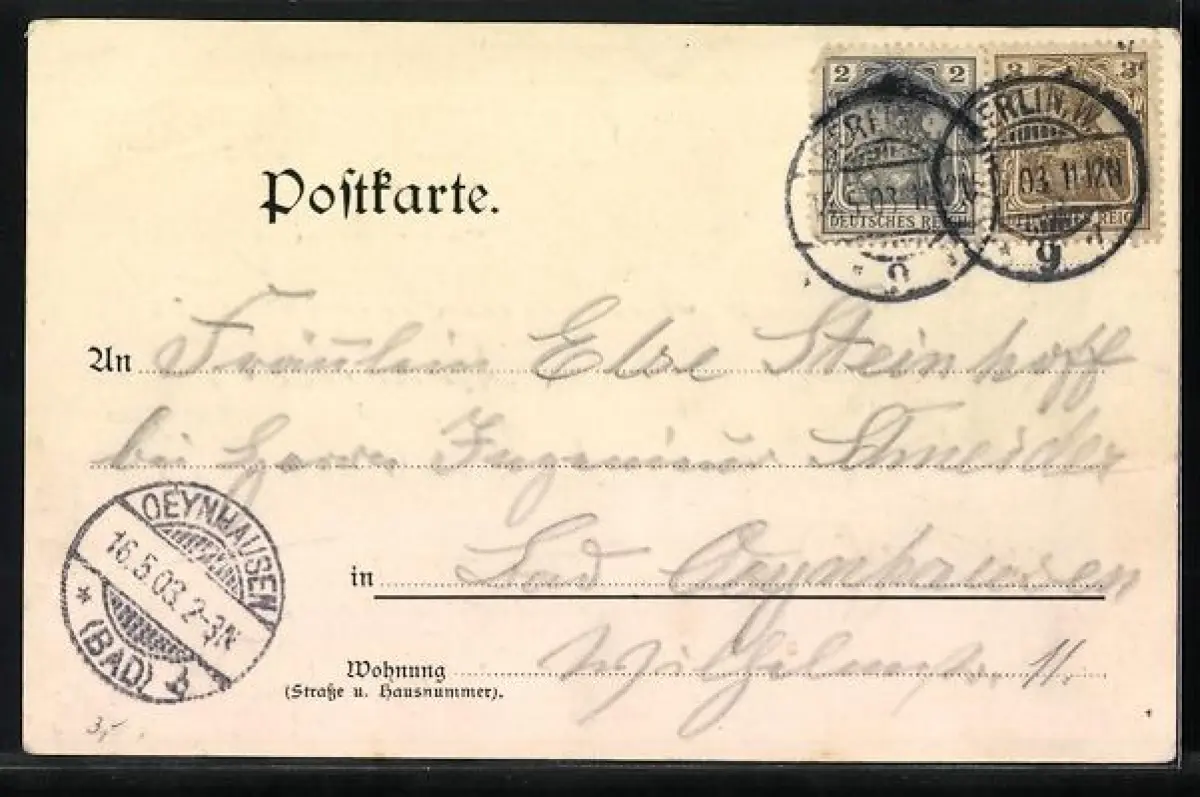 2 2 3 3
DEUTSCHES REICH DEUTSCHES REICH
BERLIN, W.
5.03. 11-12N
03. 11-12N
9 9
Poſtkarte.
An Fräulein Else Steinhoff
bei Herrn Ingenieur
OEYNHAUSEN
16.5.03. 2-3N
* (BAD) b
in Bad Oeynhausen
Wohnung Wilhelmstr. 11.
(Straße u. Hausnummer).